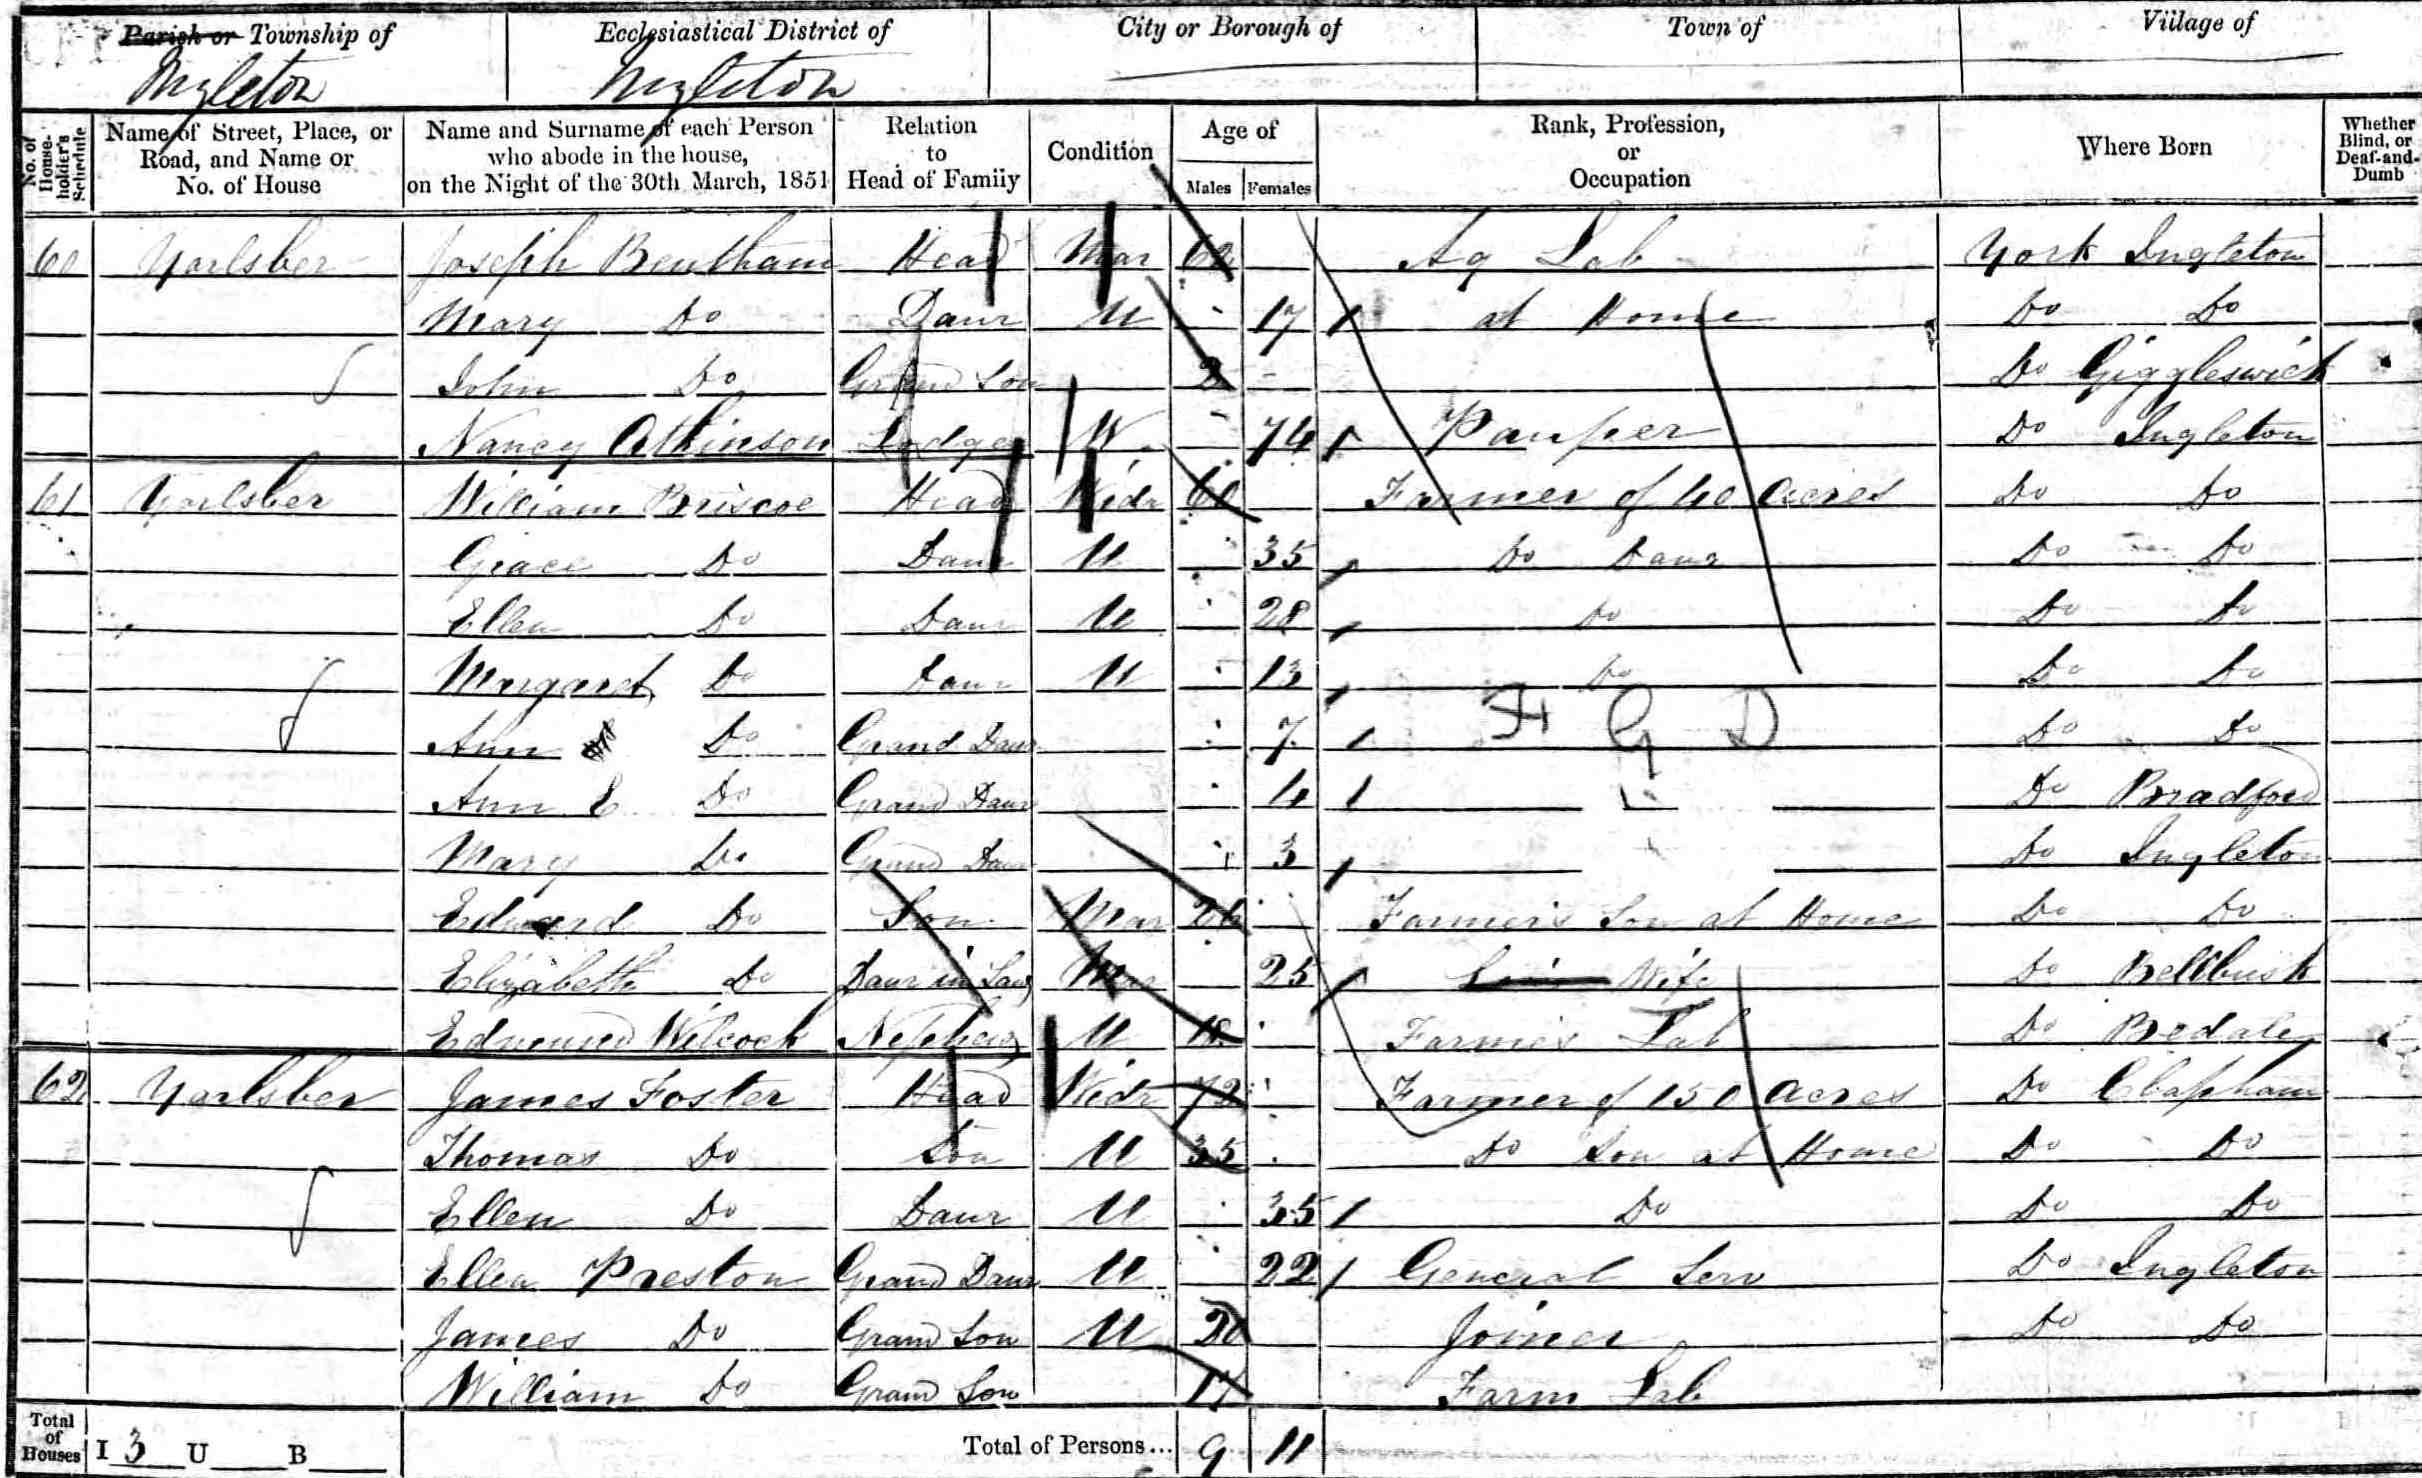 Parish or Township of Ecclesiastical District of City or Borough of Town of Village of
Ingleton Ingleton
No. of House-holder's Schedule Name of Street, Place, or Road, and Name or No. of House Name and Surname of each Person who abode in the house, on the Night of the 30th March, 1851 Relation to Head of Family Condition Age of Males Females Rank, Profession, or Occupation Where Born Whether Blind, or Deaf-and-Dumb
60 Yarlsber Joseph Bentham Head Mar 62 Ag Lab York Ingleton
Mary Do Daur U 17 at Home Do Do
John Do Grand Son 2 Do Giggleswick
Nancy Atkinson Lodger W 74 Pauper Do Ingleton
61 Yarlsber William Briscoe Head Widr 60 Farmer of 40 Acres Do Do
Grace Do Daur U 35 Do Daur Do Do
Ellen Do Daur U 28 Do Do Do
Margaret Do Daur U 13 Do Do Do
Ann Do Grand Daur 7 F G D Do Do
Ann E Do Grand Daur 4 Do Bradford
Mary Do Grand Daur 3 Do Ingleton
Edward Do Son Mar 26 Farmer's Son at Home Do Do
Elizabeth Do Daur in Law Mar 25 Wife Do Bellbusk
Edmund Wilcock Nephew U 18 Farmer's Lab Do Bedale
62 Yarlsber James Foster Head Widr 72 Farmer of 150 Acres Do Clapham
Thomas Do Son U 35 Do Son at Home Do Do
Ellen Do Daur U 35 Do Do Do
Ellen Preston Grand Daur U 22 General Serv Do Ingleton
James Do Grand Son U 20 Joiner Do Do
William Do Grand Son 17 Farm Lab
Total of Houses I 3 U B Total of Persons... 9 11